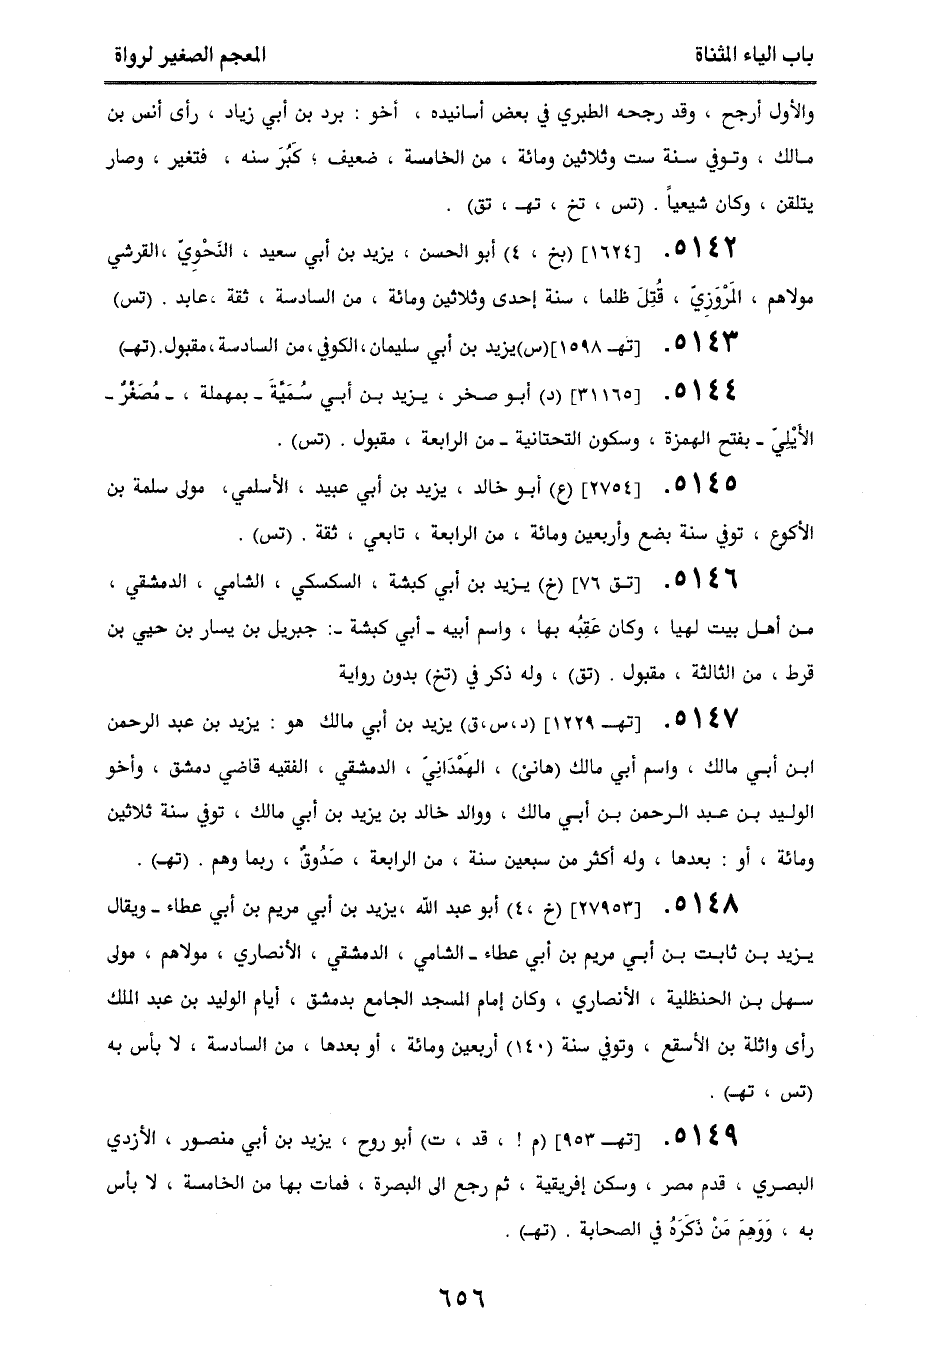 باب الياء المثناة
المعجم الصغير لرواة
والأول أرجح ، وقد رجحه الطبري في بعض أسانيده ، أخو : برد بن أبي زياد ، رأى أنس بن
مالك ، وتوفي سنة ست وثلاثين ومائة ، من الخامسة ، ضعيف ؛ كَبُرَ سنه ، فتغير ، وصار
يتلقن ، وكان شيعياً . (تس ، تخ ، تهـ ، تق) .
٥١٤٢. [١٦٢٤] (بخ ، ٤) أبو الحسن ، يزيد بن أبي سعيد ، النَحْوِيّ ،القرشي
مولاهم ، المَرْوَزِيّ ، قُتِلَ ظلما ، سنة إحدى وثلاثين ومائة ، من السادسة ، ثقة ،عابد . (تس)
٥١٤٣. [تهـ ١٥٩٨](س)يزيد بن أبي سليمان،الكوفي،من السادسة،مقبول.(تهـ)
٥١٤٤. [٣١١٦٥] (د) أبو صخر ، يزيد بن أبي سُمَيَّةَ ـ بمهملة ، ـ مُصَغَّرٌ ـ
الأَيْلِيّ ـ بفتح الهمزة ، وسكون التحتانية ـ من الرابعة ، مقبول . (تس) .
٥١٤٥. [٢٧٥٤] (ع) أبو خالد ، يزيد بن أبي عبيد ، الأسلمي، مولى سلمة بن
الأكوع ، توفي سنة بضع وأربعين ومائة ، من الرابعة ، تابعي ، ثقة . (تس) .
٥١٤٦. [تق ٧٦] (خ) يزيد بن أبي كبشة ، السكسكي ، الشامي ، الدمشقي ،
من أهل بيت لهيا ، وكان عَقِبُه بها ، واسم أبيه ـ أبي كبشة ـ: جبريل بن يسار بن حيي بن
قرط ، من الثالثة ، مقبول . (تق) ، وله ذكر في (تخ) بدون رواية
٥١٤٧. [تهـ ١٢٢٩] (د،س،ق) يزيد بن أبي مالك هو : يزيد بن عبد الرحمن
ابن أبي مالك ، واسم أبي مالك (هانئ) ، الهَمْدَانِيّ ، الدمشقي ، الفقيه قاضي دمشق ، وأخو
الوليد بن عبد الرحمن بن أبي مالك ، ووالد خالد بن يزيد بن أبي مالك ، توفي سنة ثلاثين
ومائة ، أو : بعدها ، وله أكثر من سبعين سنة ، من الرابعة ، صَدُوقٌ ، ربما وهم . (تهـ) .
٥١٤٨. [٢٧٩٥٣] (خ ،٤) أبو عبد الله ،يزيد بن أبي مريم بن أبي عطاء ـ ويقال
يزيد بن ثابت بن أبي مريم بن أبي عطاء ـ الشامي ، الدمشقي ، الأنصاري ، مولاهم ، مولى
سهل بن الحنظلية ، الأنصاري ، وكان إمام المسجد الجامع بدمشق ، أيام الوليد بن عبد الملك
رأى واثلة بن الأسقع ، وتوفي سنة (١٤٠) أربعين ومائة ، أو بعدها ، من السادسة ، لا بأس به
(تس ، تهـ) .
٥١٤٩. [تهـ ٩٥٣] (م ! ، قد ، ت) أبو روح ، يزيد بن أبي منصور ، الأزدي
البصري ، قدم مصر ، وسكن إفريقية ، ثم رجع الى البصرة ، فمات بها من الخامسة ، لا بأس
به ، وَوَهِمَ مَنْ ذَكَرَهُ في الصحابة . (تهـ) .
٦٥٦